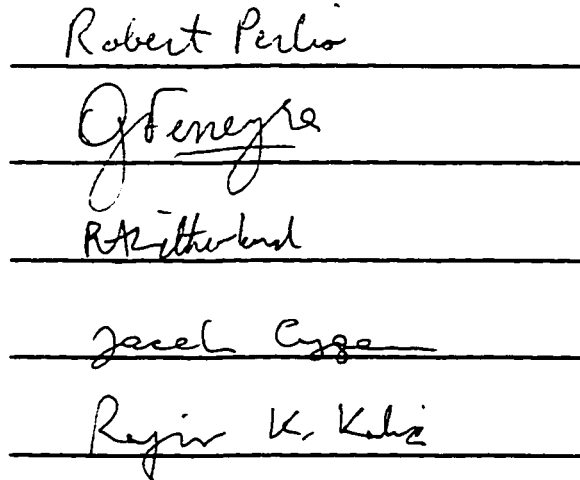 Robert Perlis
G Ferreyra
R A Litherland
Jacek Cygan
Rajiv K. Kalia